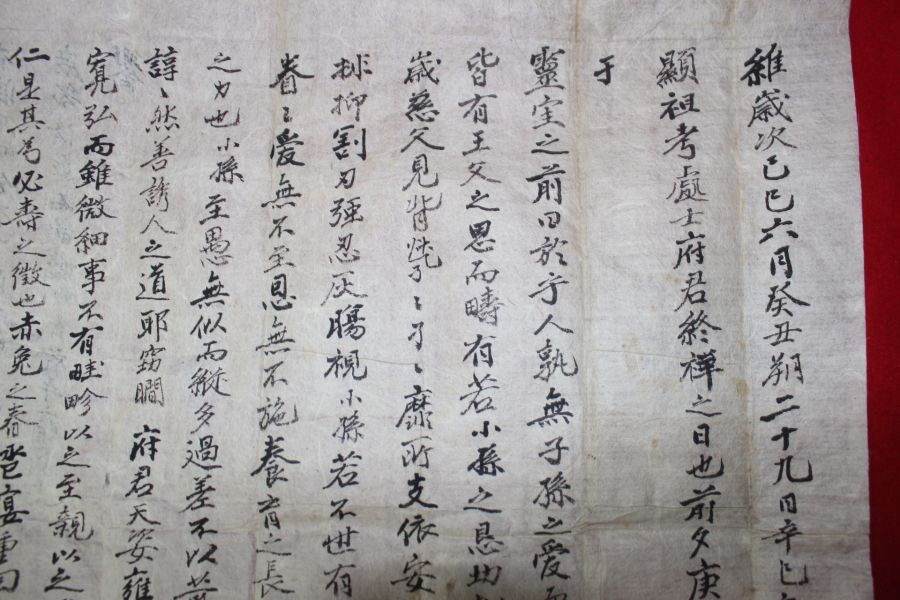 維歲次己巳六月癸丑朔二十九日辛巳
顯祖考處士府君終禫之日也前夕庚
于
靈筵之前曰於乎人孰無子孫之愛
皆有王父之恩而疇有若小孫之恳
歲慈父見背恍々了々靡所支依安
抑割刃強忍灰腸視小孫若不世有
眷々愛無不至恩無不施養育之長
之力也小孫至愚無似而縱多過差不以
諄々然善誘人之道耶窃瞷府君天姿雍
寬弘而雖微細事不有畦畛以之至親以之
仁是其為必壽之徵也赤兔之春巹宴重